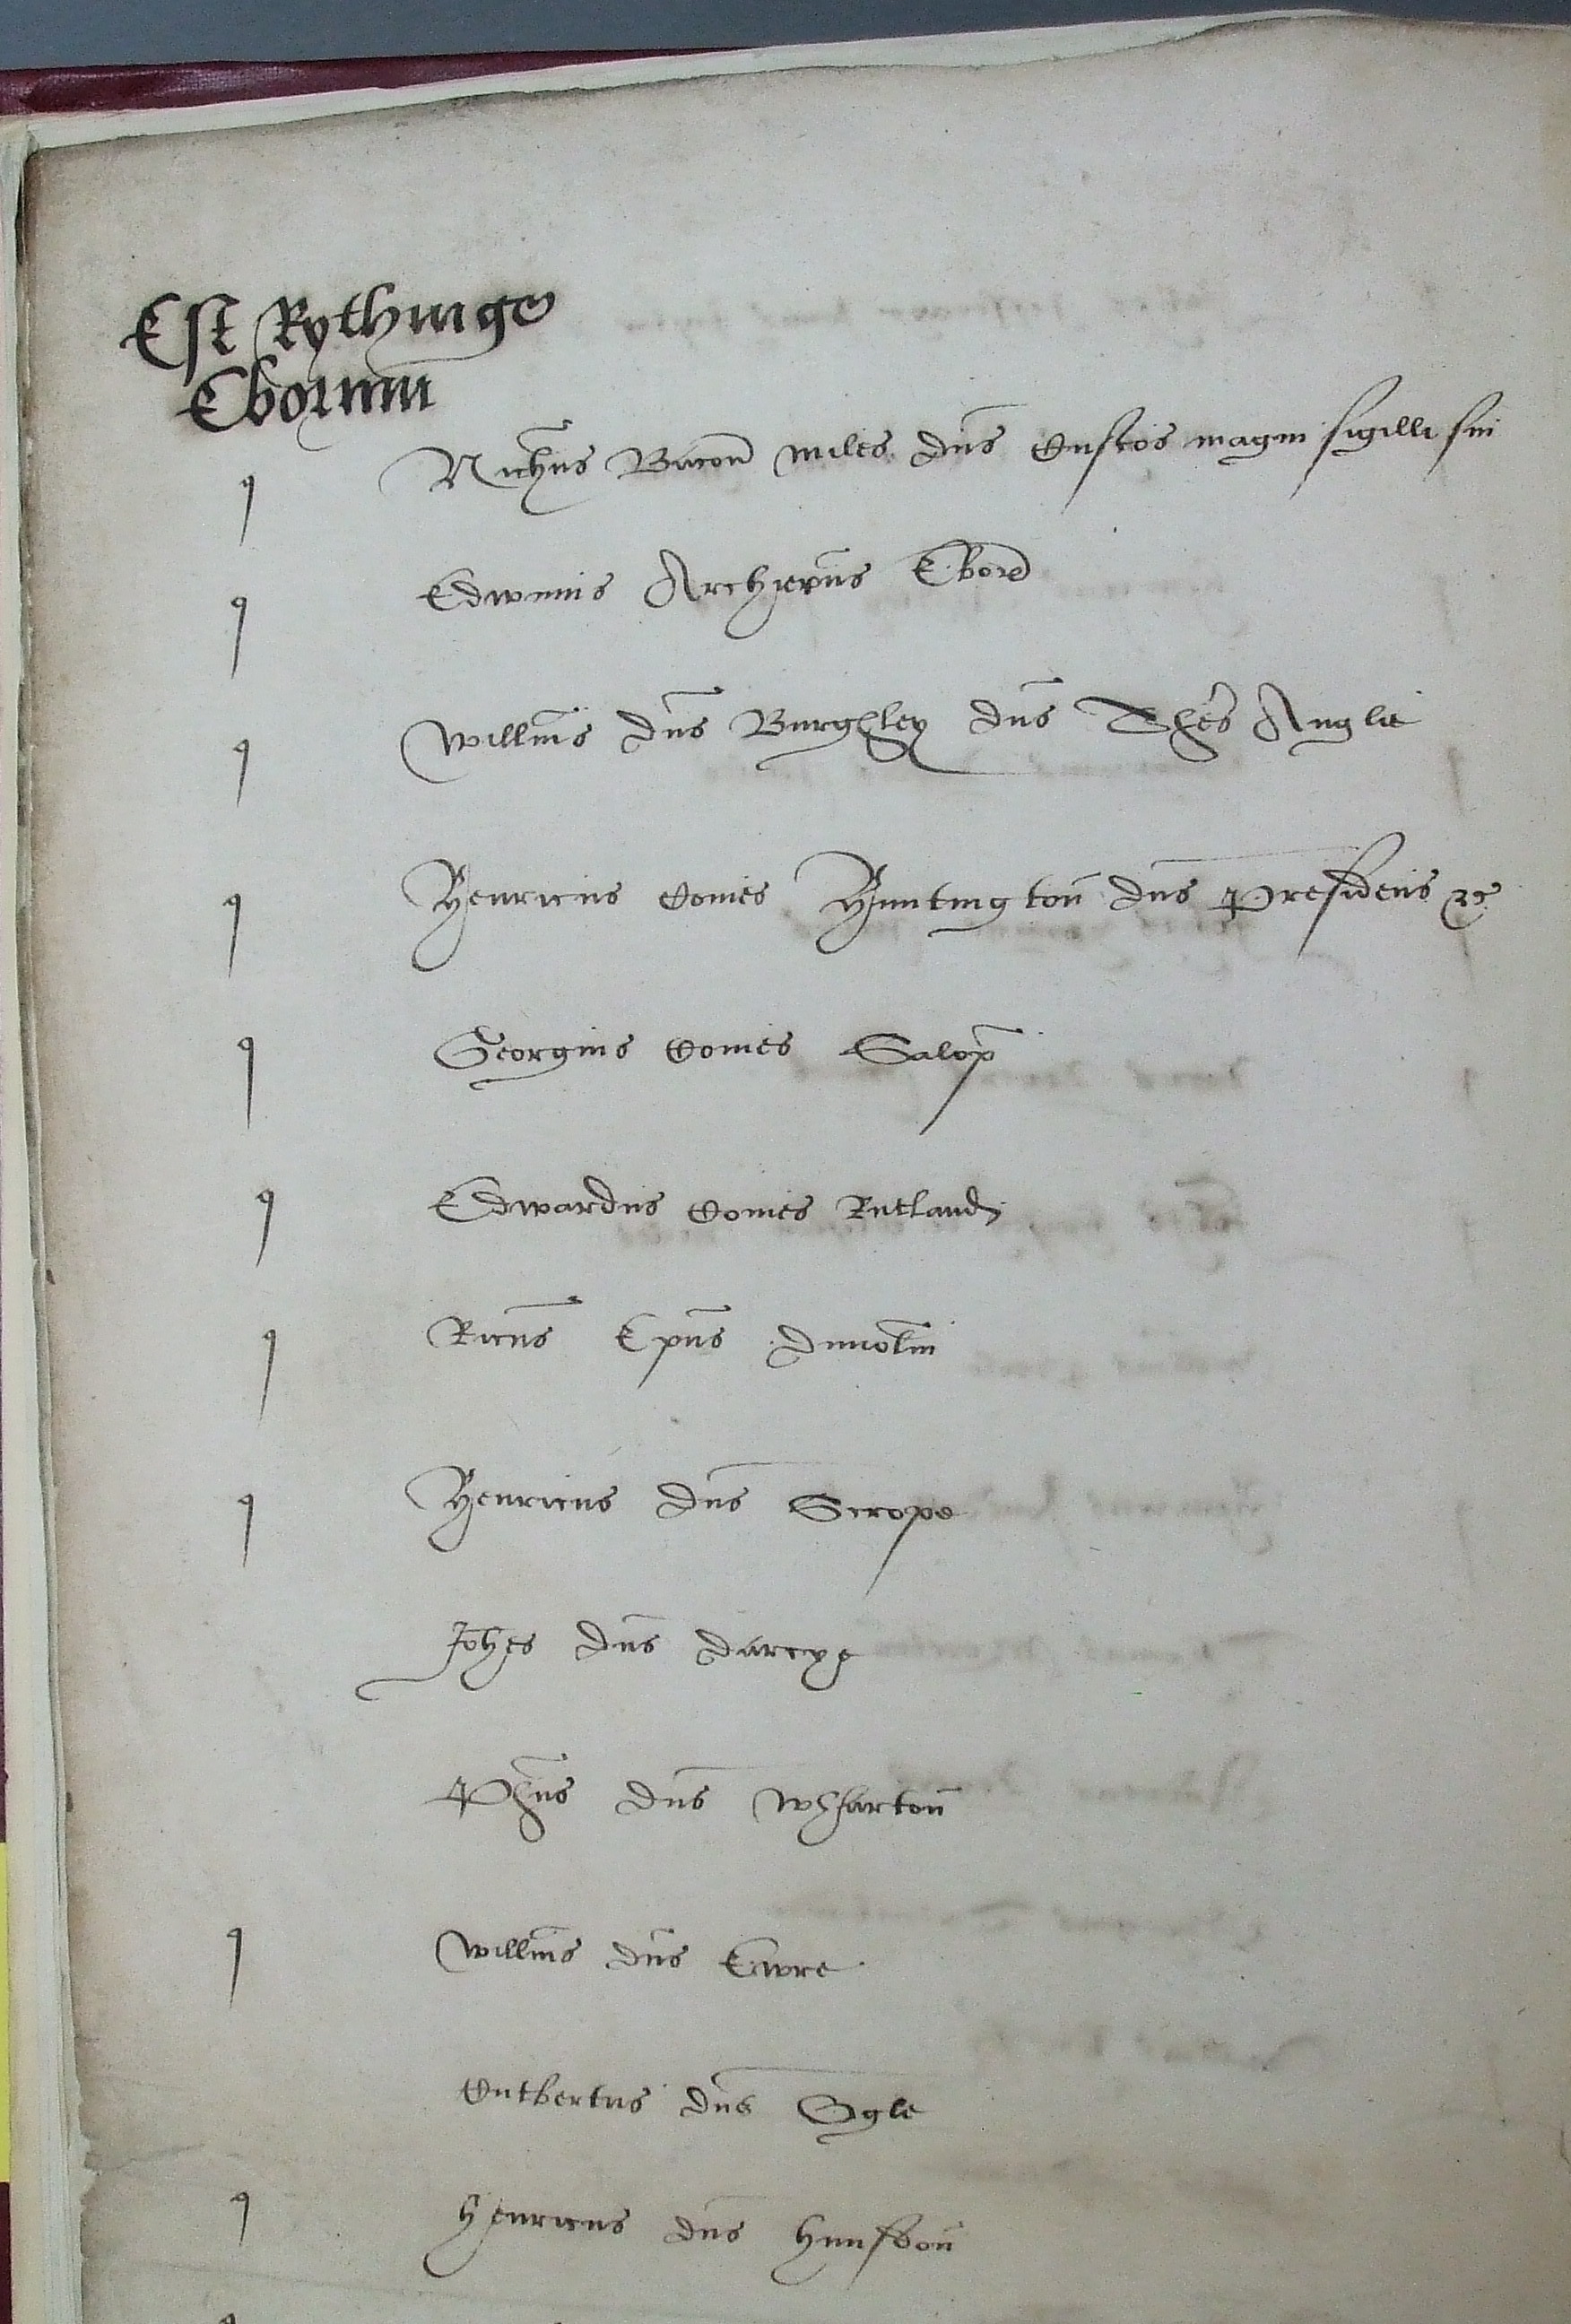 Est Rythinge
Eborum
q Nichus Bacon miles dns Custos magni sigilli sui
q Edwinus Archiepus Ebor
q Willms dns Burghley dns Thes Anglie
q Henricus Comes Huntington dns Presidens &c
q Georgius Comes Salop
q Edwardus Comes Rutland
q Ricus Epus Dunolm
q Henricus dns Scrope
Johes dns Darcye
Phus dns Wharton
q Willms dns Ewre
Cutbertus dns Ogle
q Henricus dns Hunsdon